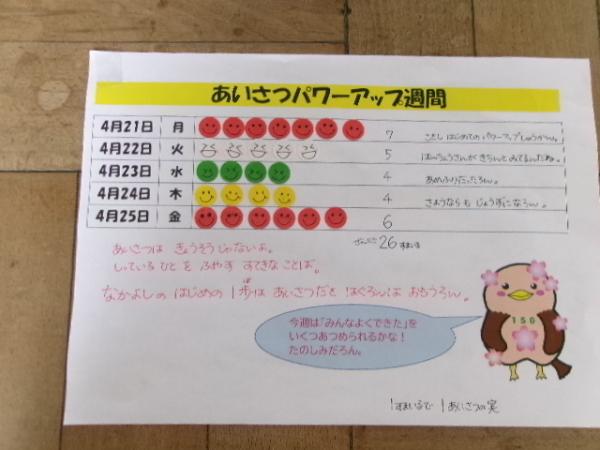 あいさつパワーアップ週間
4月21日 月 7 ことし はじめての パワーアップしゅうかん。
4月22日 火 5
4月23日 水 4 あめふりだったろん。
4月24日 木 4 さようならも じょうずになろん。
4月25日 金 6
ぜんぶで 26 すまいる
あいさつは きょうそうじゃないよ。
しっているひとを ふやす すてきなことば。
なかよしの はじめの 1歩は あいさつだと はぐろんは おもうろん。
今週は「みんなよくできた」を
いくつあつめられるかな！
たのしみだろん。
156
1すまいるで 1あいさつの実